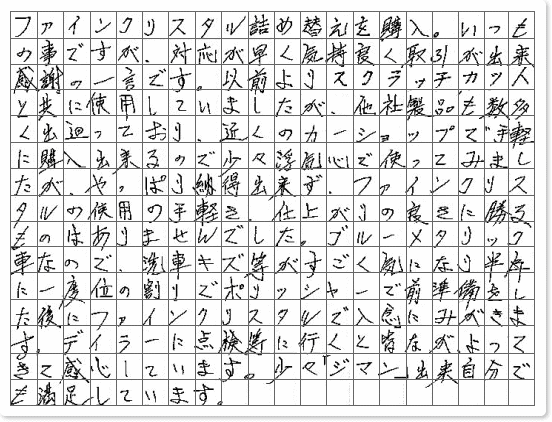 ファインクリスタル詰め替えを購入。いつも
の事ですが、対応が早く気持良く取引が出来
感謝の一言です。以前よりスクラッチカット
と共に使用していましたが、他社製品も数多
く出廻っており、近くのカーショップで手軽
に購入出来るので少々浮気心で使ってみまし
たが、やっぱり納得出来ず、ファインクリス
タルの使用の手軽さ、仕上がりの良さに勝る
ものはありませんでした。ブルーメタリック
車なので、洗車キズ等がすごく気になり半年
に一度位の割りでポリッシャーで前準備をし
た後にファインクリスタルで入念にみがきま
す。ディラーに点検等に行くと皆なが、よって
きて感心しています。少々「ジマン」出来自分で
も満足しています。